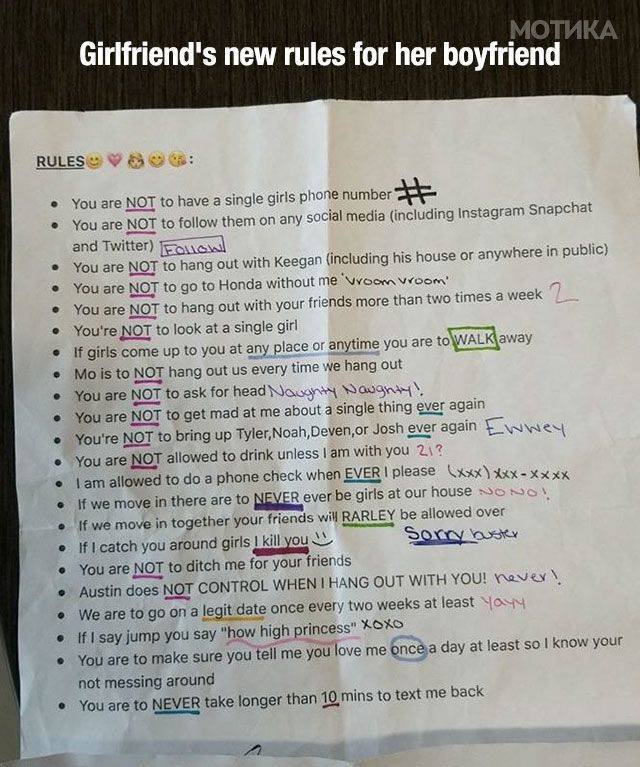 МОТИКА
Girlfriend's new rules for her boyfriend
RULES😊💗👸😊😘:
• You are NOT to have a single girls phone number #
• You are NOT to follow them on any social media (including Instagram Snapchat
and Twitter) Follow
• You are NOT to hang out with Keegan (including his house or anywhere in public)
• You are NOT to go to Honda without me 'vroom vroom'
• You are NOT to hang out with your friends more than two times a week 2
• You're NOT to look at a single girl
• If girls come up to you at any place or anytime you are to WALK away
• Mo is to NOT hang out us every time we hang out
• You are NOT to ask for head Naughty Naughty!
• You are NOT to get mad at me about a single thing ever again
• You're NOT to bring up Tyler,Noah,Deven,or Josh ever again Ewwey
• You are NOT allowed to drink unless I am with you 21?
• I am allowed to do a phone check when EVER I please (xxx) xxx-xxxx
• If we move in there are to NEVER ever be girls at our house NO NO!
• If we move in together your friends will RARLEY be allowed over
• If I catch you around girls I kill you Sorry buster
• You are NOT to ditch me for your friends
• Austin does NOT CONTROL WHEN I HANG OUT WITH YOU! never!
• We are to go on a legit date once every two weeks at least Yayy
• If I say jump you say "how high princess" XOXO
• You are to make sure you tell me you love me once a day at least so I know your
not messing around
• You are to NEVER take longer than 10 mins to text me back